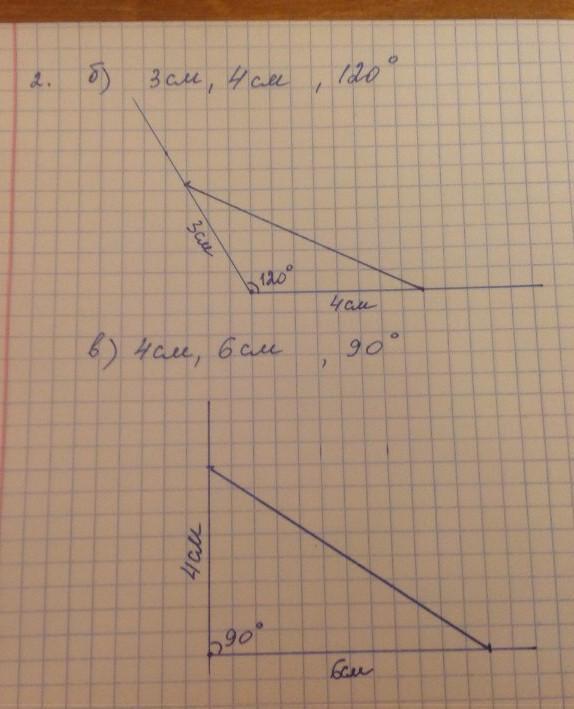 2. б) 3см, 4см , 120°
3см
120°
4см
в) 4см, 6см , 90°
4см
90°
6см